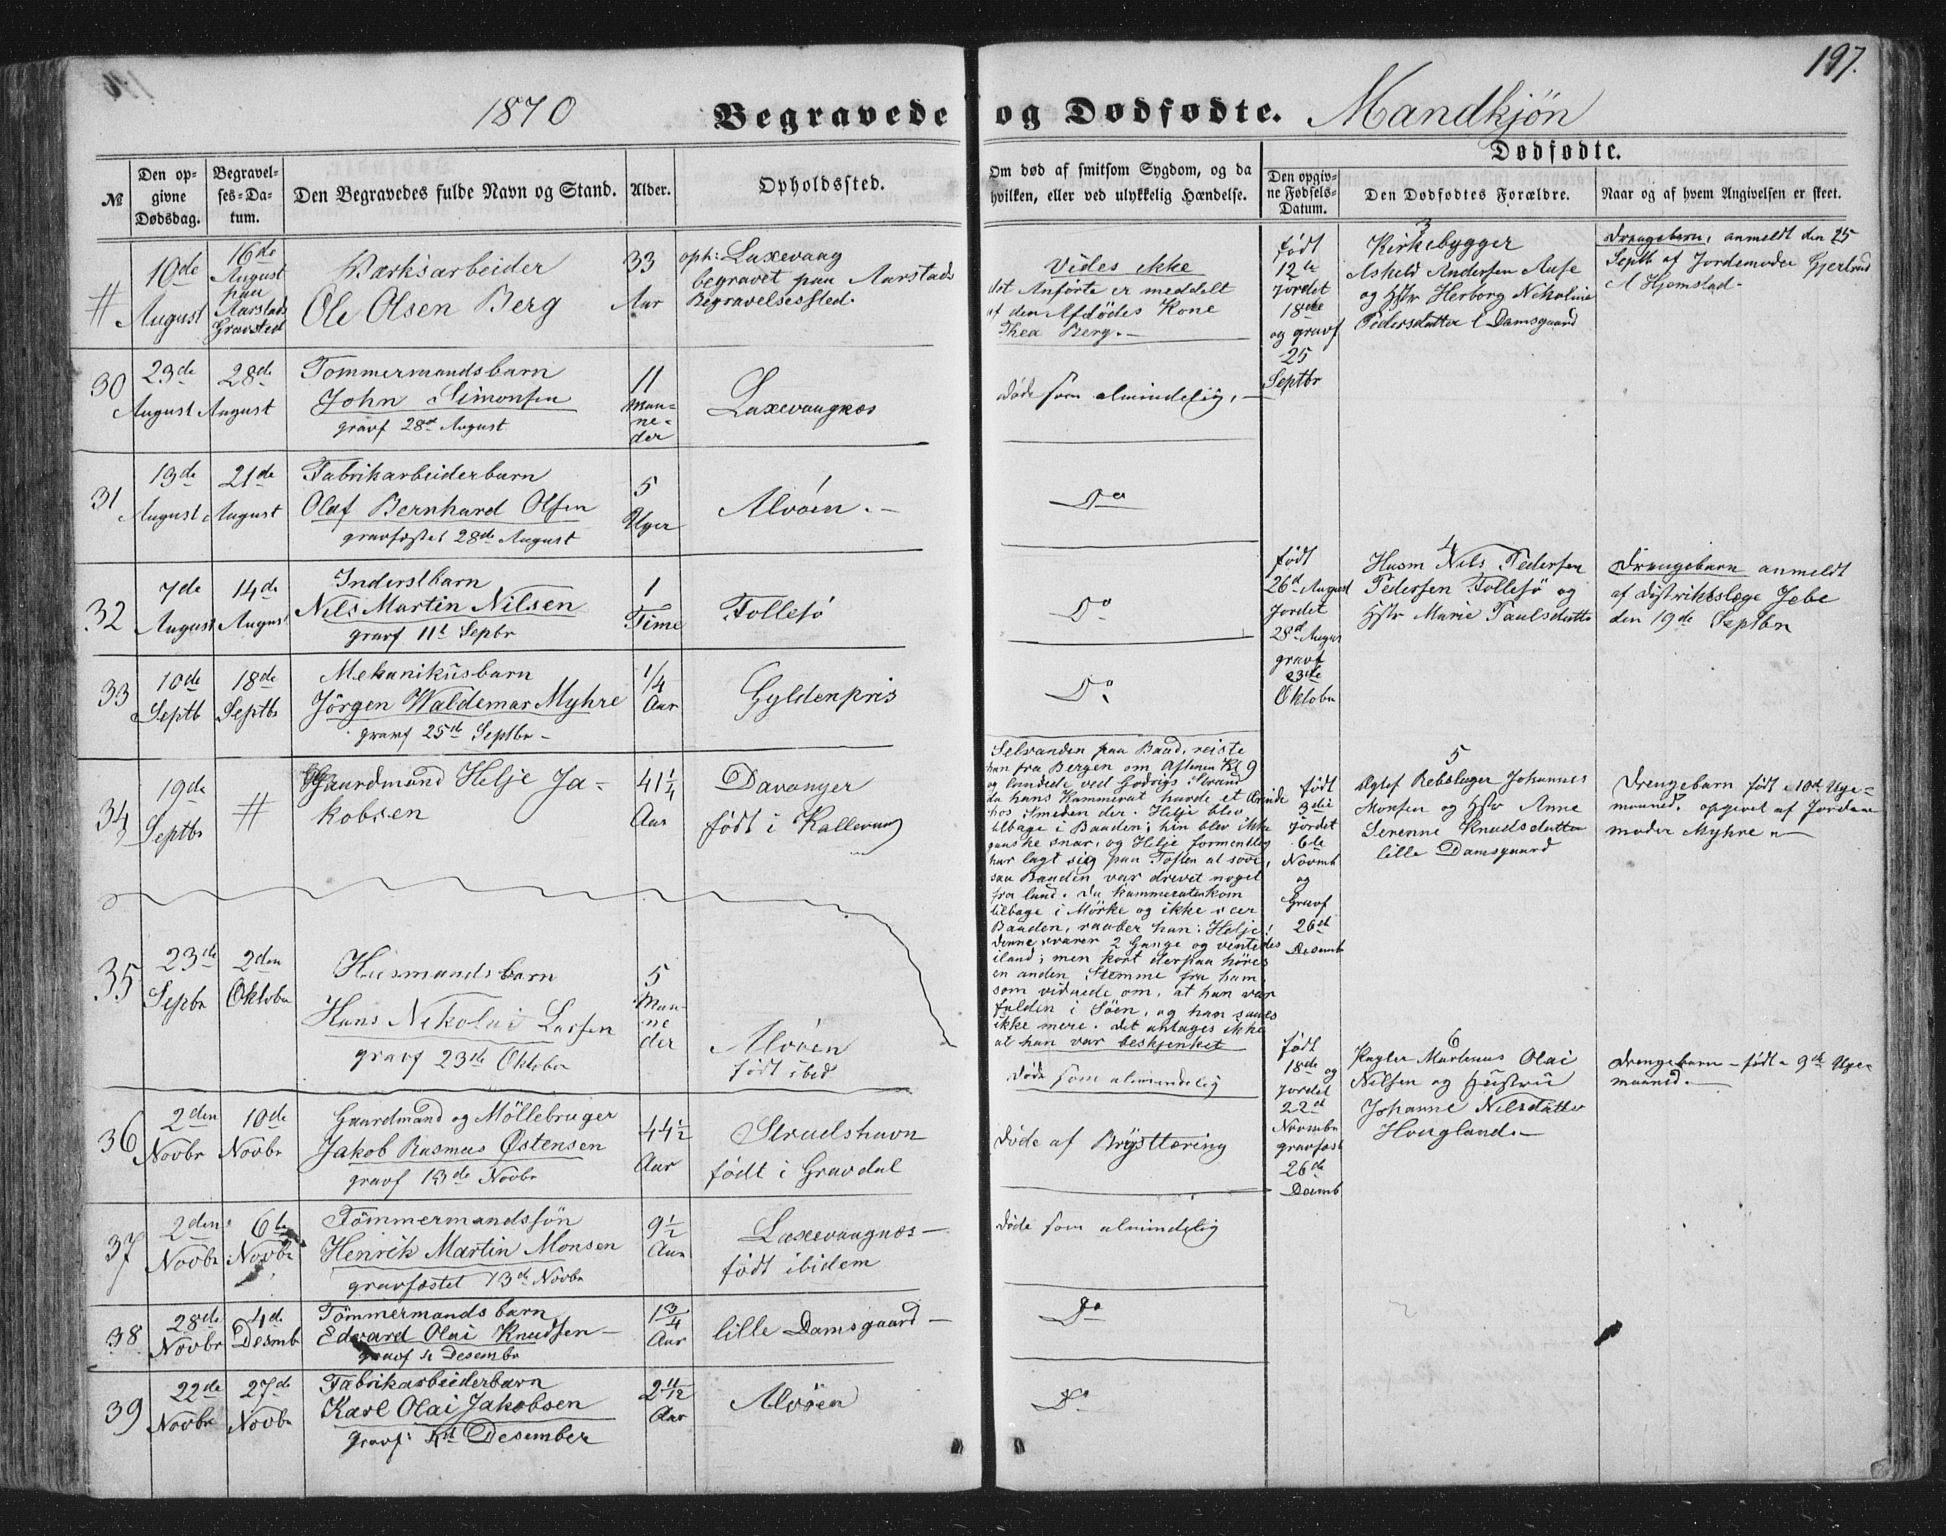 197.
1870 Begravede og Dødfødte. Mandkjøn
№
Den op-
givne
Dødsdag.
Begravel-
ses-Da-
tum.
Den Begravedes fulde Navn og Stand.
Alder.
Opholdssted.
Om død af smitsom Sygdom, og da
hvilken, eller ved ulykkelig Hændelse.
Dødfødte.
Den opgiv-
ne Fødsels-
Datum.
Den Dødfødtes Forældre.
Naar og af hvem Angivelsen er skeet.
#
10de
August
16de
August
paa
Aarstads
Gravsted
Værksarbeider
Ole Olsen Berg
33
Aar
oph: Laxevaag
begravet paa Aarstads
Begravelsessted.
Vides ikke
det Anførte er meddelt
af den Afdødes Kone
Thea Berg.
30
23de
August
28de
August
Tømmermandsbarn
John Simonsen
gravf 28de August
11
Maa-
ne-
der
Laxevaagnæs
døde som almindelig.
31
13de
August
21de
August
Fabrikarbeiderbarn
Olaf Bernhard Olsen
gravfæstet 28de August
5
Uger
Alvöen.
Do
32
7de
August
14de
August
Inderstbarn
Nils Martin Nilsen
gravf 11t Sepbr
1
Time
Follesö
Do
33
10de
Septb
18de
Septbr
Mekanikusbarn
Jörgen Waldemar Myhre
gravf 25de Septbr
1/4
Aar
Gyldenpris
Do
34
19de
Septbr
#
Gaardmand Helje Ja-
kobsen
41 1/4
Aar
Davanger
født i Kallevaag
Selvanden paa Baad, reiste
han fra Bergen om Aftenen Kl 9
og landede ved Godvigs Strand
da hans Kammerat havde et Ærinde
hos Smeden der. Helje blev
tilbage i Baaden; hin blev ikke
ganske snar, og Helje formentlig
har lagt sig paa Toften at sove,
saa Baaden var drevet noget
fra land. Da kammeraten kom
tilbage i Mörke og ikke seer
Baaden, raaber han: Helje!
denne svarer 2 Gange og ventedes
iland; men kort derpaa høres
en anden Stemme fra ham
som vidnede om, at han var
falden i Söen, og han sanes
ikke mere. det antages ikke
at han var beskjenket
35
23de
Sepbr
2den
Oktobr
Husmandsbarn
Hans Nikolai Larsen
gravf 23de Oktober
5
Maa-
ne
der
Alvöen
født ibid
døde som almindelig
36
2den
Novbr
10de
Novbr
Gaardmand og Möllebruger
Jakob Rasmus Östensen
gravf 13de Novbr
44 1/2
Aar
Strudshavn
født i Gravdal
døde af Brysttæring
37
2den
Novbr
6te
Novbr
Tömmermandssön
Henrik Martin Monsen
gravfæstet 13de Novbr
9 1/2
Aar
Laxevaagnæs
født ibidem
døde som almindelig
38
28de
Novbr
4de
Desmb
Tömmermandsbarn
Edvard Olai Knudsen
gravf 4 Desembr
1 3/4
Aar
lille Damsgaard
Do
39
22de
Novbr
27de
Novbr
Fabrikarbeiderbarn
Karl Olai Jakobsen
gravf: 4de Desember
2 11/12
Aar
Alvöen
Do
født
12te
jordet
18de
og gravf
25
Septbr
3
Kirkebygger
Askild Andersen Aase
og Hstr Herborg Nikoline
Pedersdatter l Damsgaard
Drengebarn, anmeldt den 25
Septb af Jordemoder Gjertrud
A Hjemstad.
født
26de August
Jordet
28de August
gravf
23de
Oktobr
4
Husm Nils Pedersen
Pedersen Follesö og
Hstr Marie Paulsdatter
Drengebarn anmeldt
af Distriktslæge Jebe
den 19de Septbr
født
3die
Jordet
6te
Novmb
og
Gravf
26de
Desemb
5
Rebslager Johannes
Monsen og Hstr Anne
Serenne Knudsdatter
lille Damsgaard
Drengebarn født i 10de Uge-
maaned. opgivet af Jorde-
moder Myhre
født
18de og
Jordet
22de
Novmbr
gravfæst
26de
Desmb
6
Martenus Olai
Nilsen og Hustru
Johanne Nilsdatter
Hougland.
Drengebarn – født 9de Uge-
maaned.